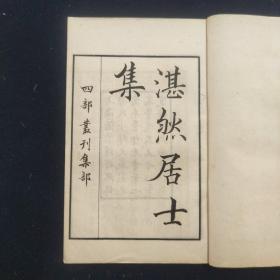 湛然居士
集
四部叢刊集部